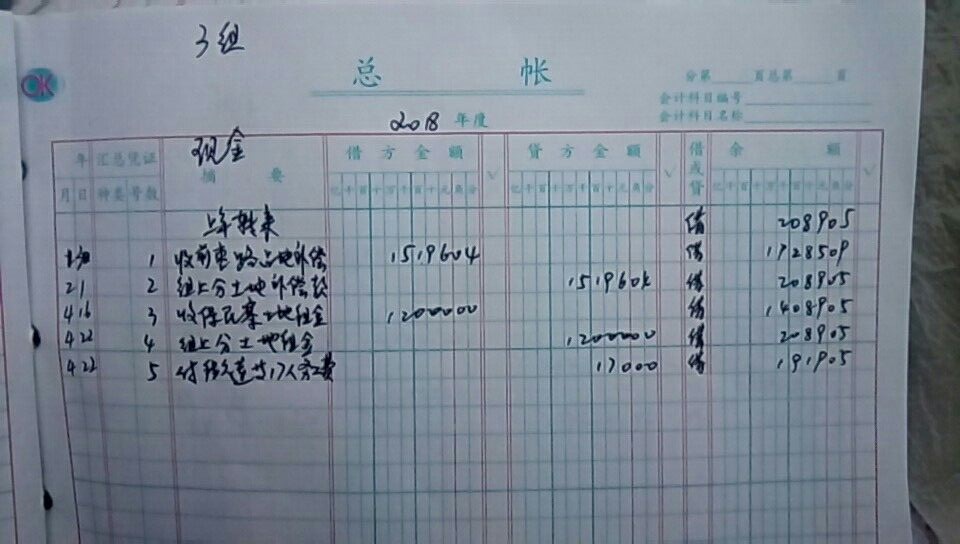 3组
OK
总帐
分第 页总第 页
会计科目编号
会计科目名称
2018 年度
现金
年 汇总凭证 摘要 借方金额 √ 贷方金额 √ 借或贷 余额 √
月 日 种类 号数 亿千百十万千百十元角分 亿千百十万千百十元角分 亿千百十万千百十元角分
上年转来 借 208905
1 30 1 收前 路占地补偿 1519604 借 1728509
2 1 2 组上分土地补偿款 1519604 借 208905
4 16 3 收 土地租金 1200000 借 1408905
4 22 4 组上分土地租金 1200000 借 208905
4 22 5 付 17人 费 17000 借 191905